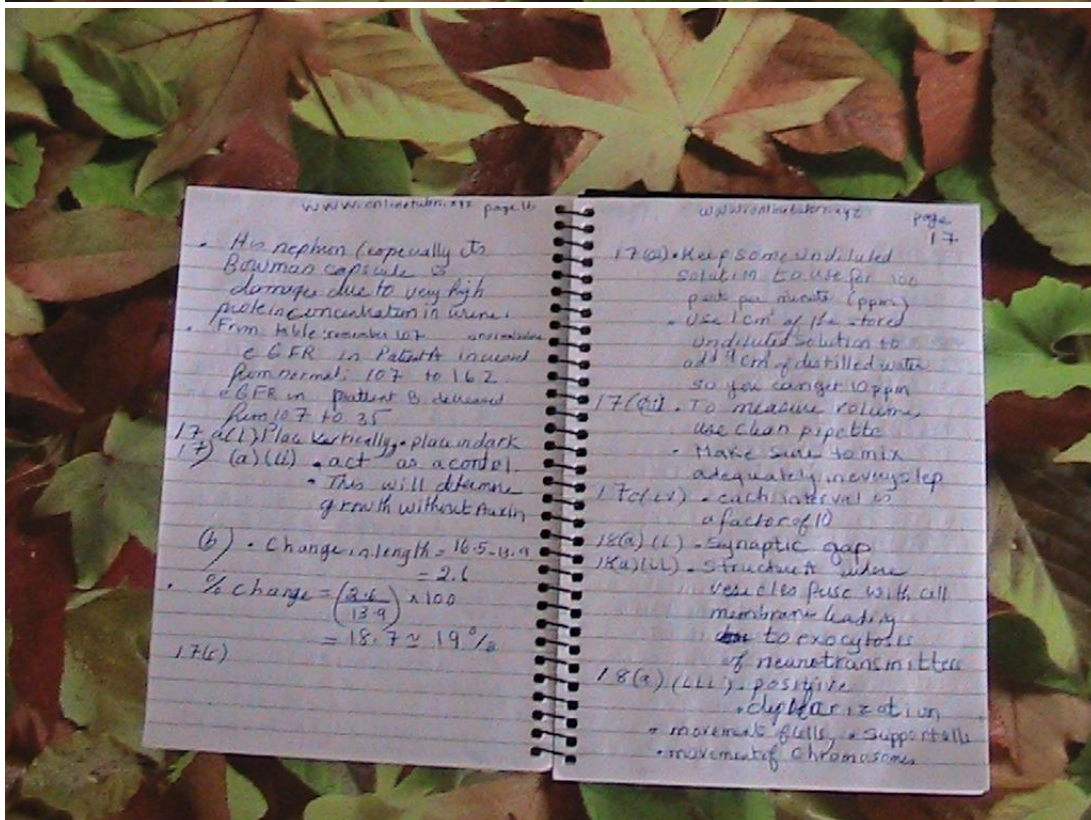 www.onlinetutors.xyz page 16
• His nephron (especially its
Bowman capsule is
damages due to very high
protein concentration in urine.
• From table: remember 107
eGFR in Patient A increased
from normal: 107 to 162
eGFR in patient B decreased
from 107 to 35
17 a(i) Place vertically, • place in dark
17) (a)(ii) • act as a contol.
• This will determine
growth without Auxin
(b) • Change in length = 16.5 - 13.9
= 2.6
• % change = (2.6/13.9) x 100
= 18.7 ≃ 19%
17(c)
page
17
• Keep some undiluted
solution to use for 100
part per (ppm)
• Use 1cm³ of the stored
undiluted solution to
add 9cm³ of distilled water
so you can get 10ppm
• To measure volume,
use clean pipette
• Make sure to mix
adequately in every step
17c(iv) • each interval is
a factor of 10
18(a)(i) • Synaptic gap
18(a)(ii) • Structure A where
vesicles fuse with cell
membrane leading
to exocytosis
of neurotransmitters
18(a)(iii) • positive
• depolarization
• movement of cells, • Support cells
• movement of Chromosomes